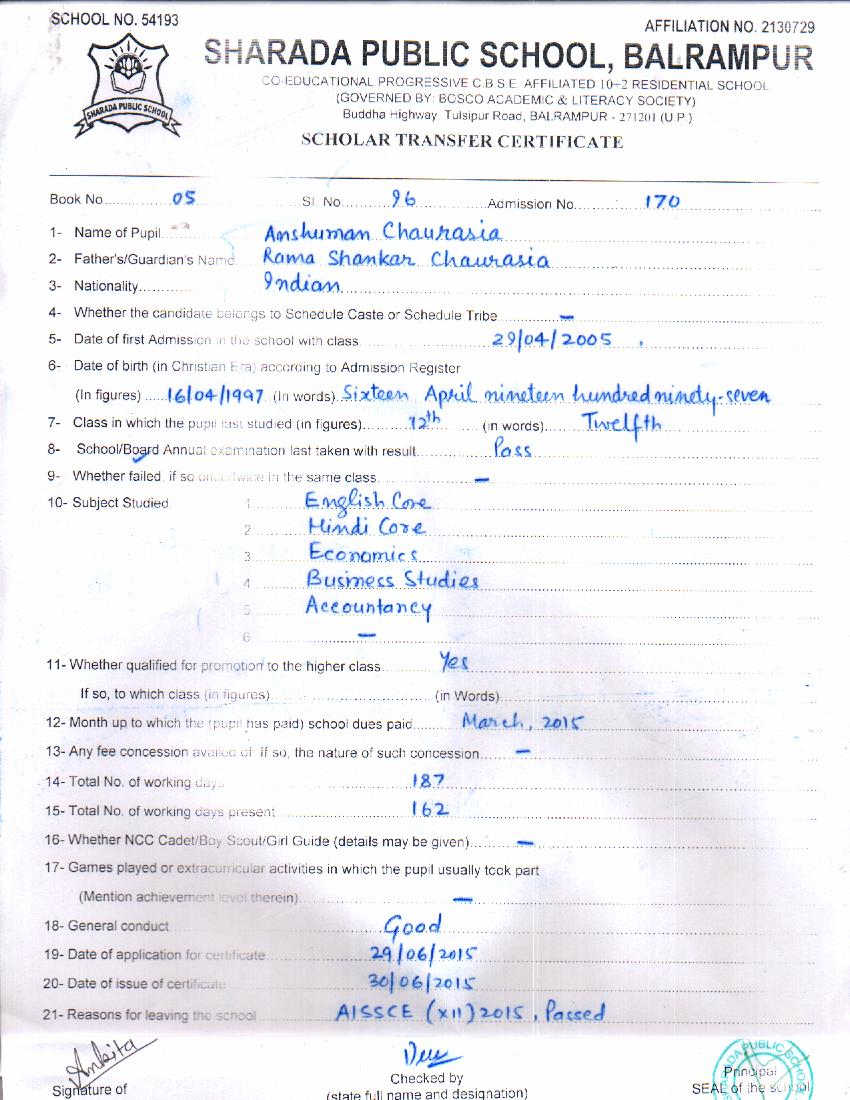 SCHOOL NO. 54193
AFFILIATION NO. 2130729
SHARADA PUBLIC SCHOOL, BALRAMPUR
SHARADA PUBLIC SCHOOL
CO-EDUCATIONAL PROGRESSIVE C.B.S.E. AFFILIATED 10+2 RESIDENTIAL SCHOOL
(GOVERNED BY: BOSCO ACADEMIC & LITERACY SOCIETY)
Buddha Highway Tulsipur Road, BALRAMPUR - 271201 (U.P.)
SCHOLAR TRANSFER CERTIFICATE
Book No. 05 Sl. No. 96 Admission No. 170
1- Name of Pupil Anshuman Chaurasia
2- Father's/Guardian's Name Rama Shankar Chaurasia
3- Nationality Indian
4- Whether the candidate belongs to Schedule Caste or Schedule Tribe –
5- Date of first Admission in the school with class 29/04/2005
6- Date of birth (in Christian Era) according to Admission Register
(In figures) 16/04/1997 (In words) Sixteen April nineteen hundred ninety-seven
7- Class in which the pupil last studied (in figures) 12th (in words) Twelfth
8- School/Board Annual examination last taken with result Pass
9- Whether failed, if so once/twice in the same class –
10- Subject Studied 1 English Core
2 Hindi Core
3 Economics
4 Business Studies
5 Accountancy
6 –
11- Whether qualified for promotion to the higher class Yes
If so, to which class (in figures) (in Words)
12- Month up to which the (pupil has paid) school dues paid March, 2015
13- Any fee concession availed of if so, the nature of such concession –
14- Total No. of working days 187
15- Total No. of working days present 162
16- Whether NCC Cadet/Boy Scout/Girl Guide (details may be given) –
17- Games played or extracurricular activities in which the pupil usually took part
(Mention achievement level therein) –
18- General conduct Good
19- Date of application for certificate 29/06/2015
20- Date of issue of certificate 30/06/2015
21- Reasons for leaving the school AISSCE (XII) 2015, Passed
Ankita
SHARADA PUBLIC SCHOOL
Signature of
Checked by
(state full name and designation)
Principal
SEAL of the school